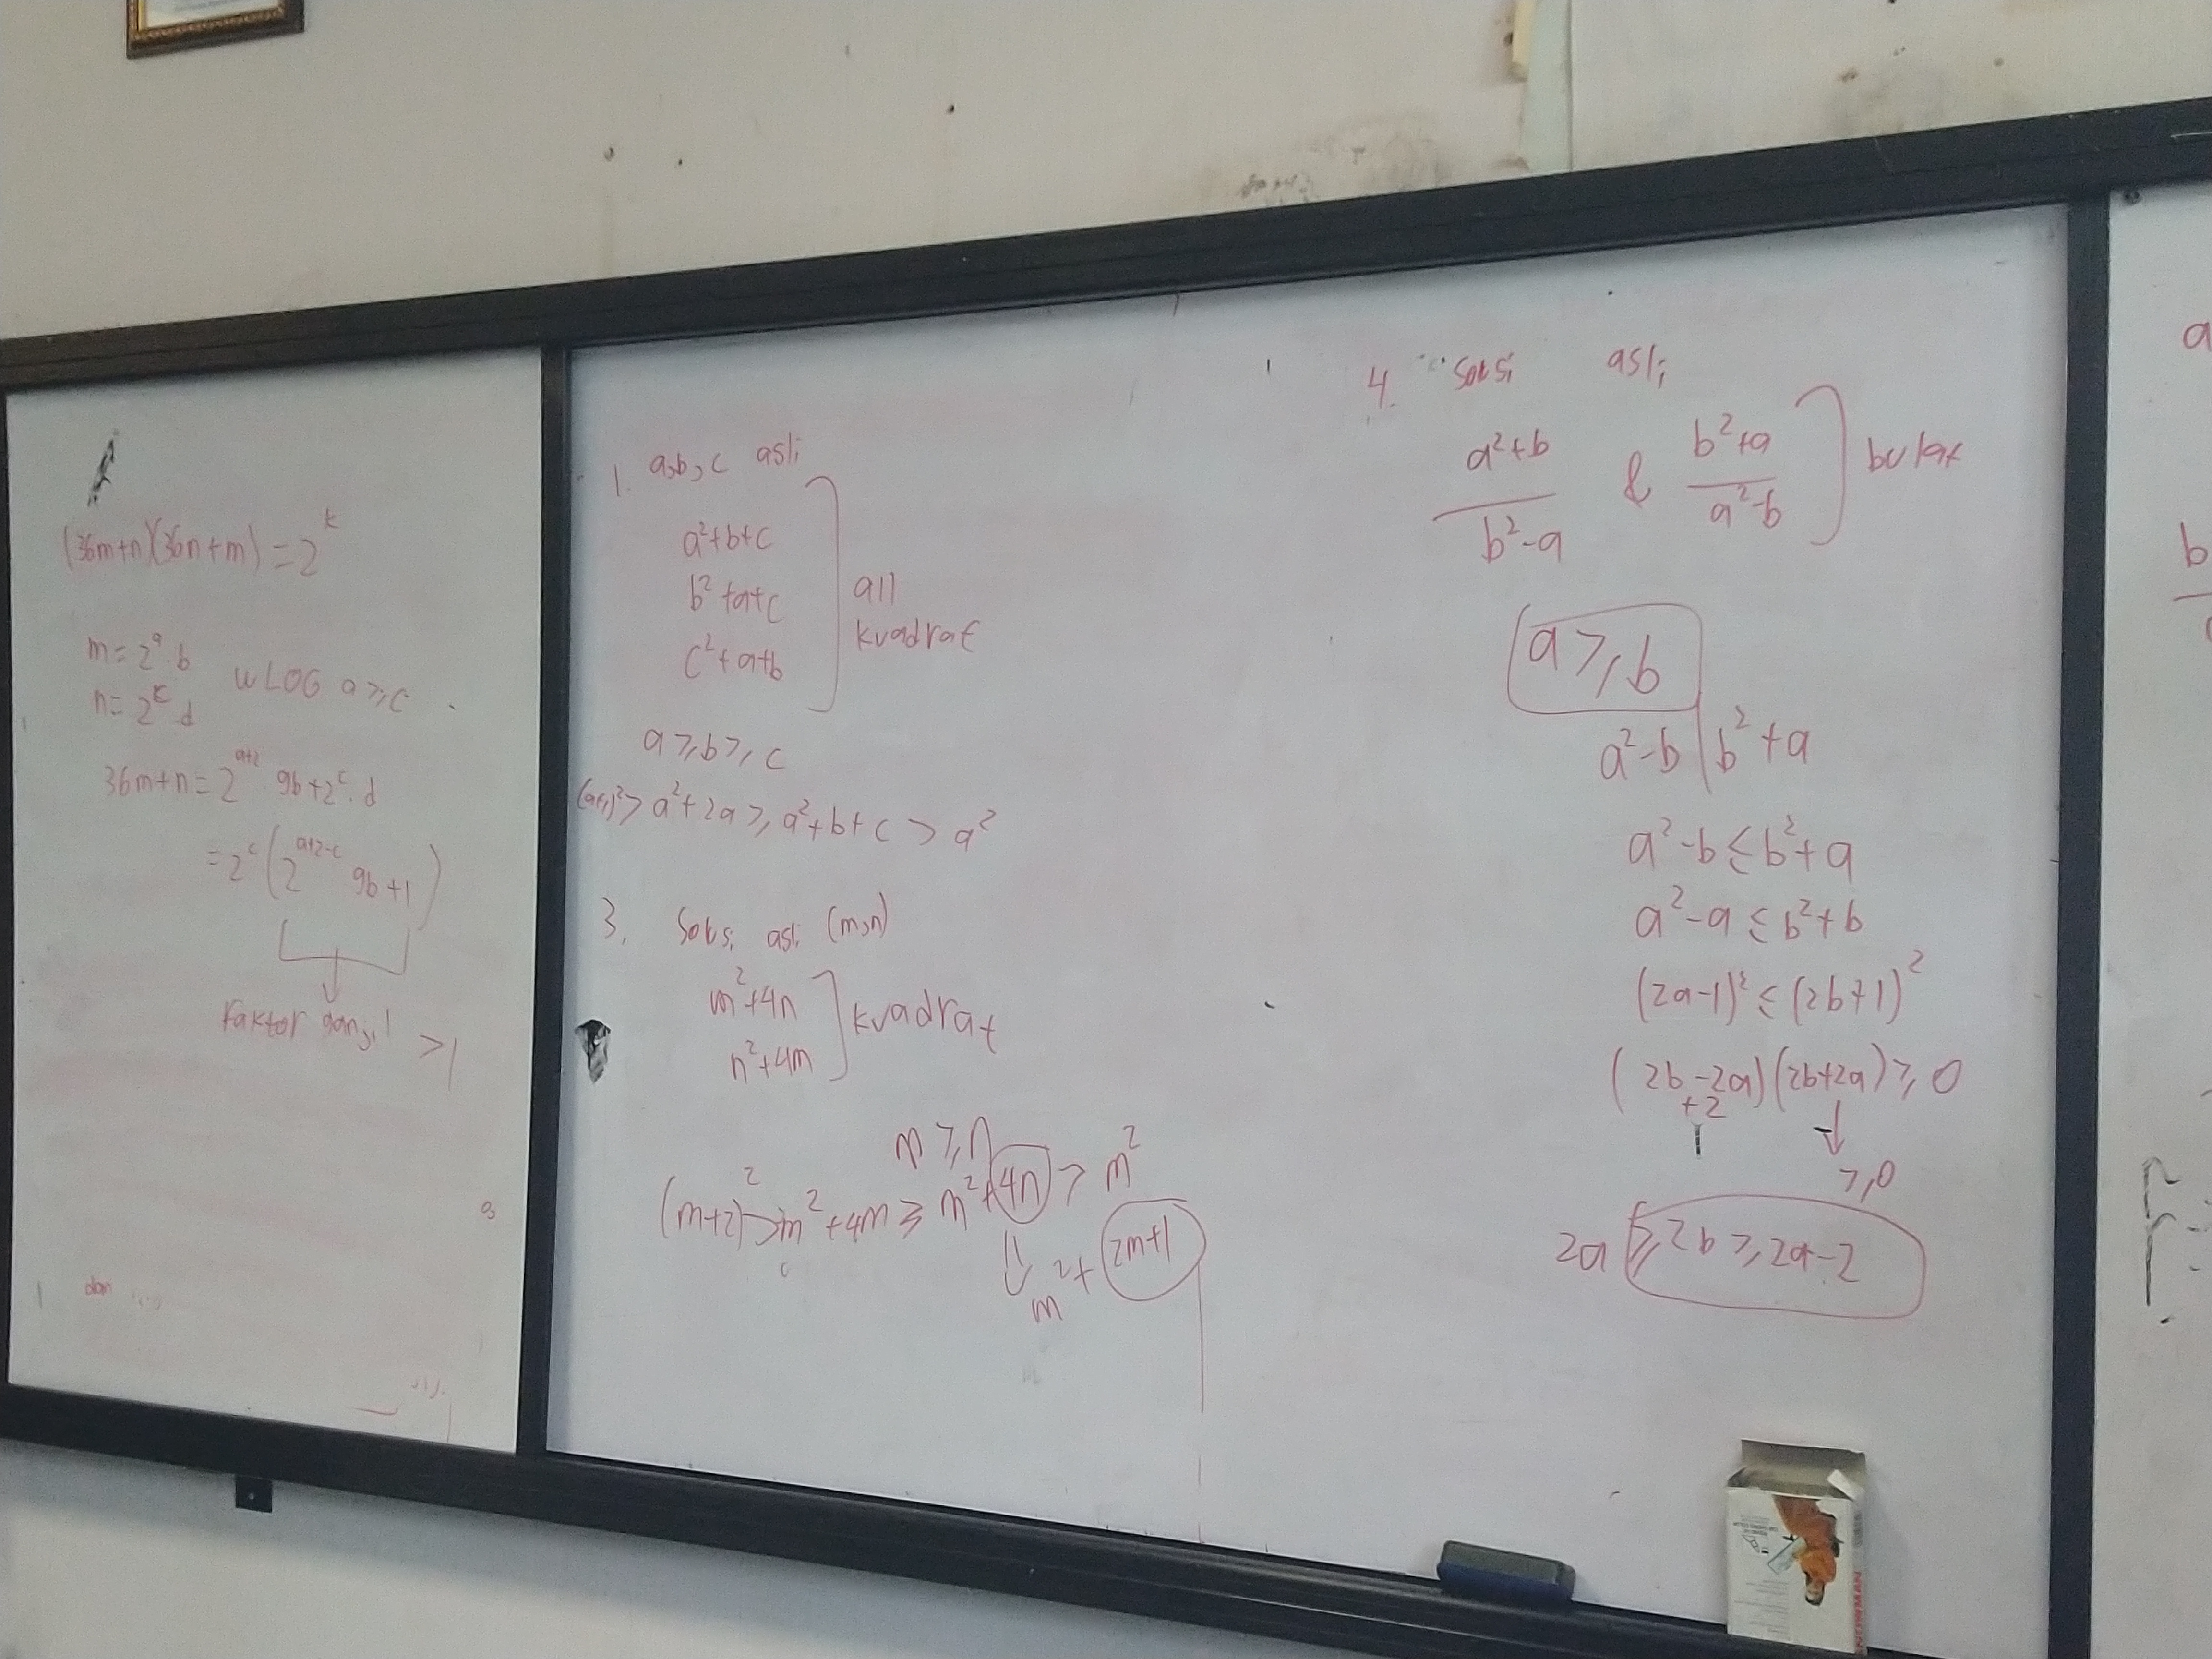 (36m+n)(36n+m) = 2^k
m = 2^a · b
n = 2^c d
WLOG a ≥ c
36m+n = 2^(a+2) 9b + 2^c · d
= 2^c (2^(a+2-c) 9b + 1)
Faktor ganjil > 1
dan
1. a,b,c asli
a²+b+c
b²+a+c
c²+a+b
all
kvadrat
a ≥ b ≥ c
(a+1)² > a²+2a ≥ a²+b+c > a²
3. Solusi asli (m,n)
m²+4n
n²+4m
kvadrat
m ≥ n
(m+2)² > m²+4m ≥ m²+4n > m²
⇓
m²+2m+1
4. Solusi asli
(a²+b)/(b²-a) & (b²+a)/(a²-b)
bulat
a ≥ b
a²-b | b²+a
a²-b ≤ b²+a
a²-a ≤ b²+b
(2a-1)² ≤ (2b+1)²
(2b-2a+2)(2b+2a) ≥ 0
↓
≥ 0
2a ≥ 2b ≥ 2a-2
a
b
SNOWMAN